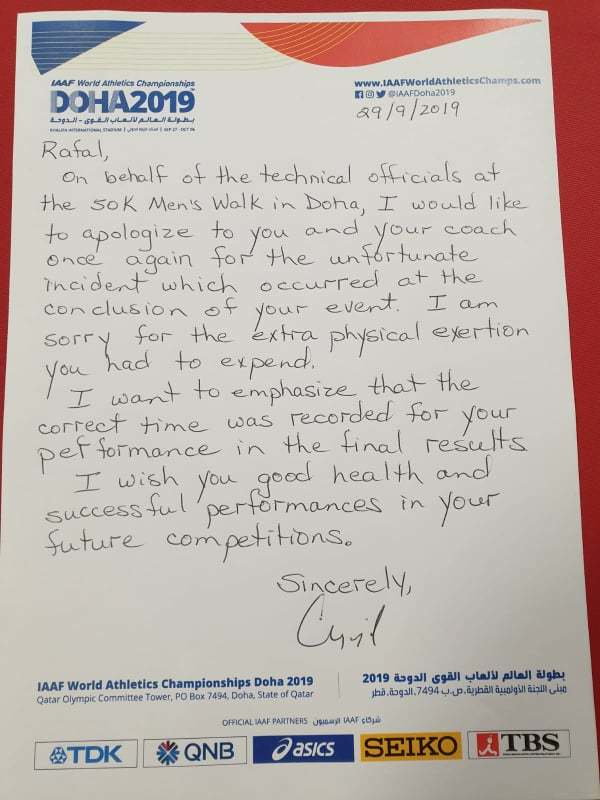 IAAF World Athletics Championships
DOHA2019™
بطولة العالم لألعاب القوى - الدوحة
KHALIFA INTERNATIONAL STADIUM | استاد خليفة الدولي | SEP 27 - OCT 06
www.IAAFWorldAthleticsChamps.com
@IAAFDoha2019
29/9/2019
Rafal,
On behalf of the technical officials at
the 50K Men's Walk in Doha, I would like
to apologize to you and your coach
once again for the unfortunate
incident which occurred at the
conclusion of your event. I am
sorry for the extra physical exertion
you had to expend.
I want to emphasize that the
correct time was recorded for your
performance in the final results
I wish you good health and
successful performances in your
future competitions.
Sincerely,
IAAF World Athletics Championships Doha 2019
Qatar Olympic Committee Tower, PO Box 7494, Doha, State of Qatar
بطولة العالم لألعاب القوى الدوحة 2019
مبنى اللجنة الأولمبية القطرية، ص.ب 7494، الدوحة، قطر
OFFICIAL IAAF PARTNERS شركاء IAAF الرسميون
TDK
QNB
asics
SEIKO
TBS